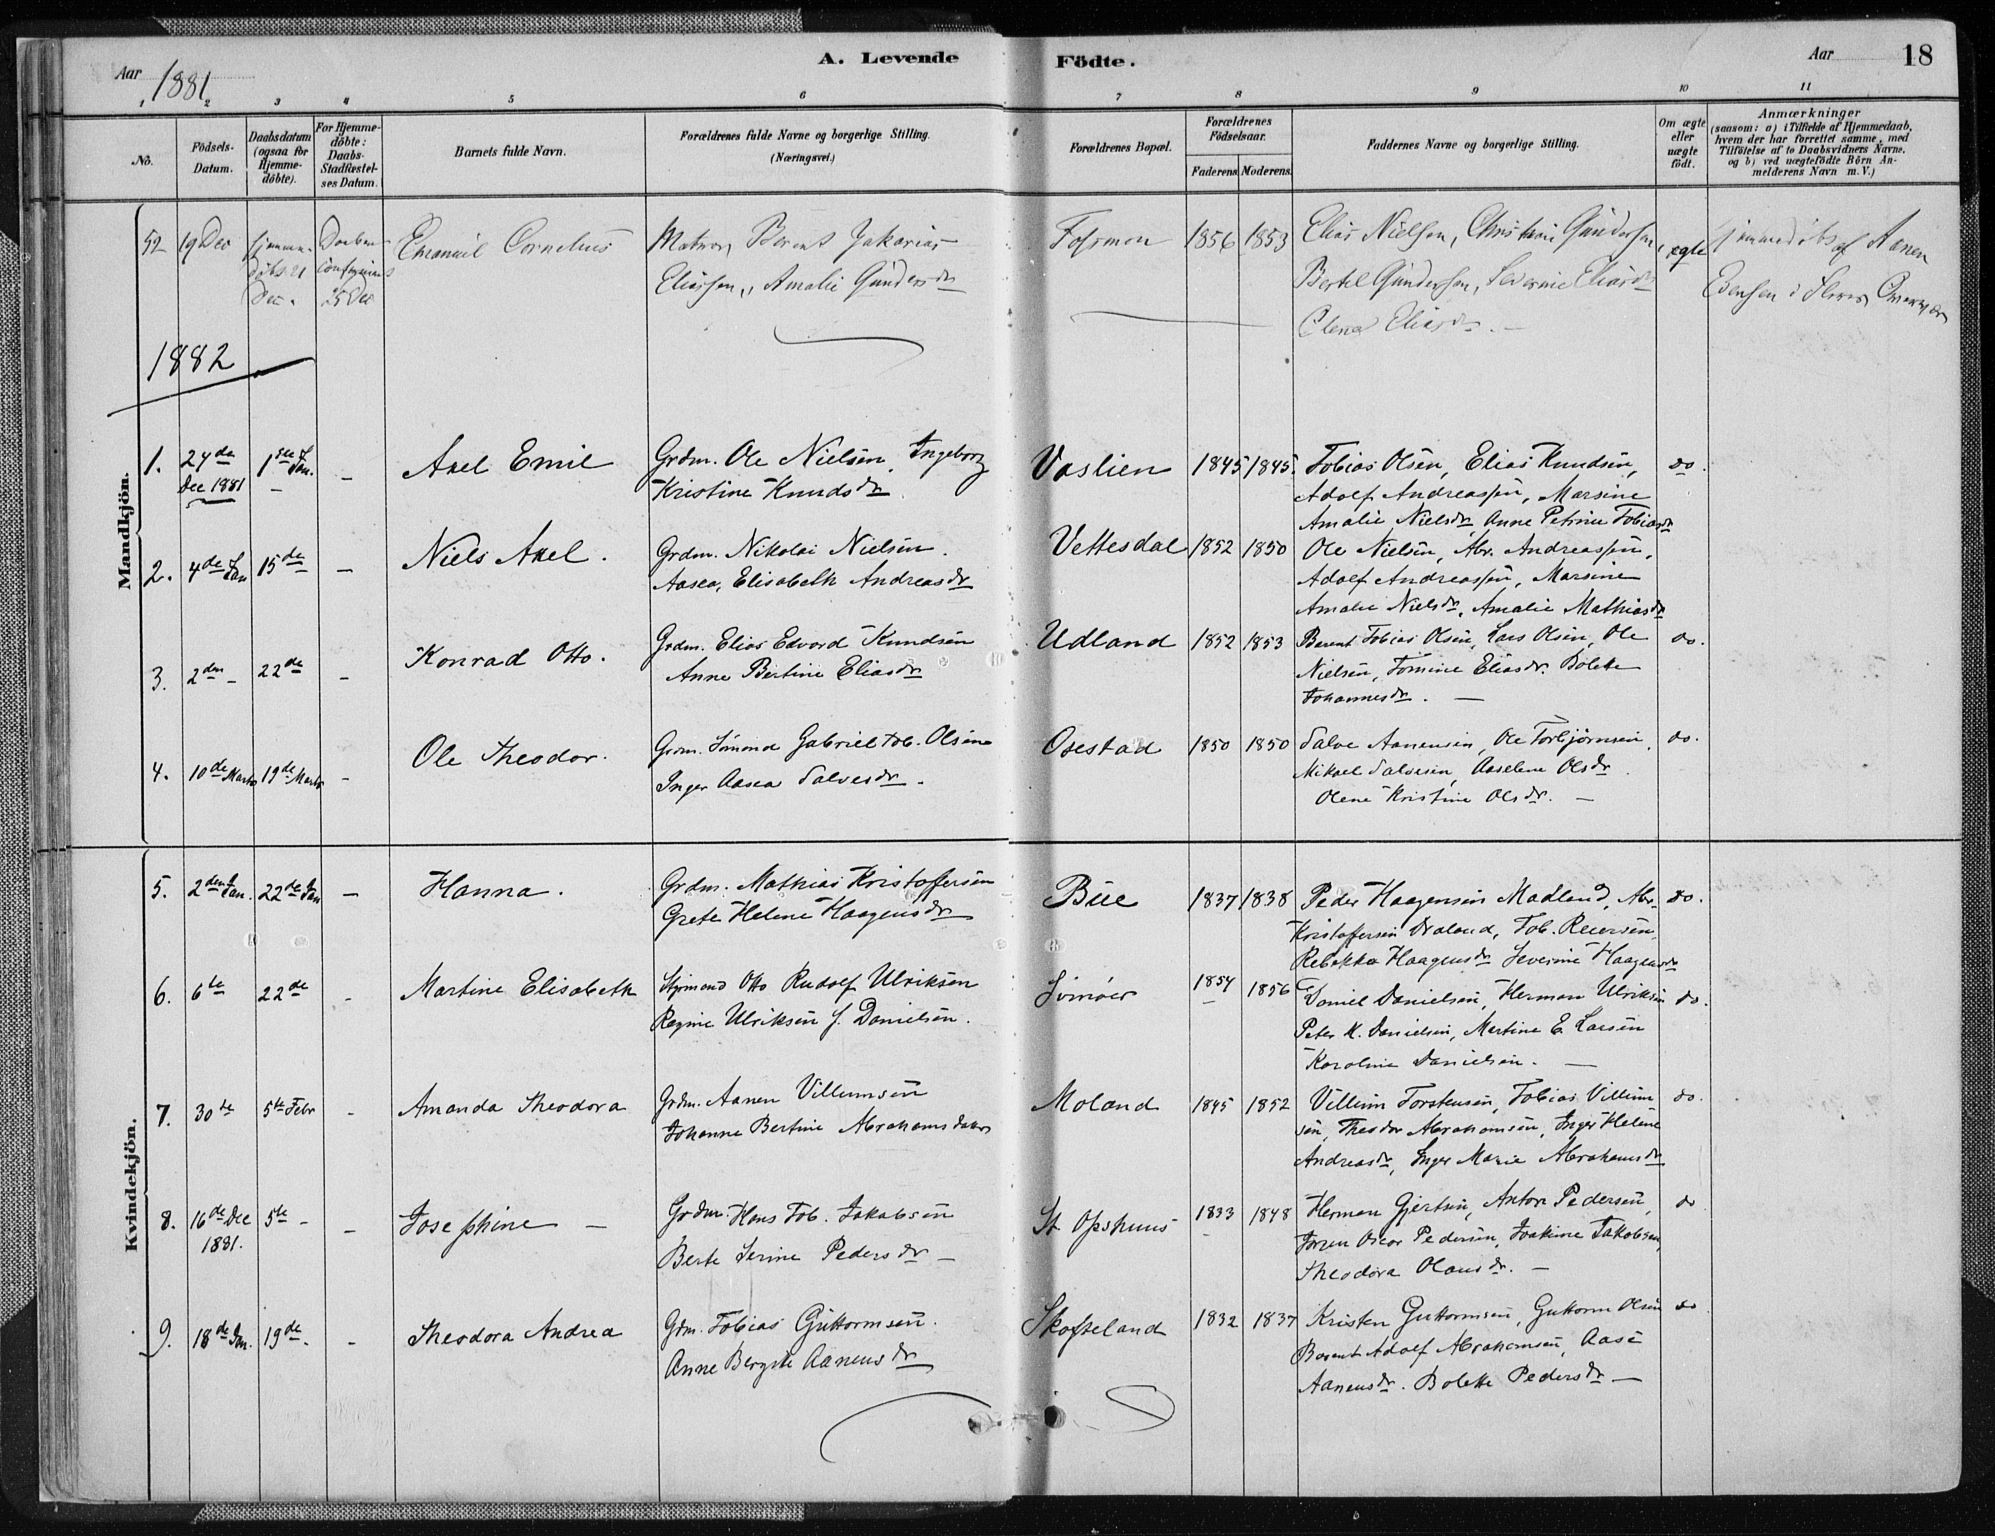 Aar 1881
A. Levende
Födte.
Aar
18
1 2 3 4 5 6 7 8 9 10 11
No.
Födsels-
Datum.
Daabsdatum
(ogsaa for
Hjemme-
döbte).
For Hjemme-
döbte:
Daabs-
Stadfæstel-
ses Datum.
Barnets fulde Navn.
Forældrenes fulde Navne og borgerlige Stilling.
(Næringsvei.)
Forældrenes Bopæl.
Forældrenes
Födselsaar.
Faderens. Moderens.
Faddernes Navne og borgerlige Stilling.
Om ægte
eller
uægte
födt.
Anmærkninger
(saasom: a) i Tilfælde af Hjemmedaab,
hvem der har forrettet samme, med
Tilföielse af to Daabsvidners Navne,
og b) ved uægtefödte Börn An-
melderens Navn m. V.)
Mandkjön.
52 19 Dec
Dec.
25 Dec
Emanuel Cornelius
Matros Berent Zakarias
Eliassen, Amalie Gundersdr
1856 1853
Elias Nielsen, Christian Gundersen,
Bertel Gundersen, Severine Eliasdr
Elena Eliasdr. —
ægte
af Aanen
1882
1. 24de
Dec 1881
1ste Jan.
—
Axel Emil
Grdm. Ole Nielsen, Ingeborg
Kristine Knudsdr
Vaslien
1845 1845.
Tobias Olsen, Elias Knudsen,
Adolf Andreassen, Marsine
Amalie Nielsdr, Anne Petrine Tobiasdr
do.
2. 4de Jan 15de —
Niels Axel.
Grdm. Nikolai Nielsen.
Aasea, Elisabeth Andreasdr
Vettesdal
1852 1850
Ole Nielsen, Abr. Andreassen,
Adolf Andreassen, Marsine
Amalie Nielsdr, Amalie Mathiasdr
3. 2den — 22de —
Konrad Otto.
Grdm. Elias Edvard Knudsen
Anne Bertine Eliasdr
Udland
1852 1853
Berent Tobias Olsen, Lars Olsen, Ole
Nielsen, Tomine Eliasdr. Bolette
Johannesdr. —
do.
4. 10de Marts 19de Marts —
Ole Theodor.
Grdm. Simond Gabriel Tob. Olsen
Inger Aasea Salvesdr.
Osestad
1850 1850
Salve Aanensen, Ole Torbjørnsen,
Mikael Salvesen, Aaselene Olsdr.
Olene Kristine Olsdr. —
do.
Kvindekjön.
5. 2den Jan. 22de Jan —
Hanna.
Grdm. Mathias Kristoffersen
Grete Helene Haagensdr
Büe
1837 1838
Peder Haagensen Madland, Abr.
Kristoffersen, Tob. Reiersen,
Rebekka Haagensdr Severine Haagensdr
do.
6. 6te 22de —
Martine Elisabeth
Styrmand Otto Rudolf Ulriksen
Regine Ulriksen f. Danielsen.
Svinöer
1854 1856
Daniel Danielsen, Herman Ulriksen
Peter M. Danielsen, Martine E. Larsen
Karoline Danielsen. —
do.
7. 30te 5te Febr —
Amanda Theodora
Grdm. Aanen Villumsen
Johanne Bertine Abrahamsdatter
Moland
1845 1852
Villum Torstensen, Tobias Villum
sen, Theodor Abrahamsen, Inger Helene
Andreasdr, Inger Marie Abrahamsdr
do.
8. 16de Dec
1881.
5te — —
Josephine —
Grdm. Hans Tob. Jakobsen
Berte Serine Pedersdr —
St. Opshuus
1833 1848
Herman Gjertsen, Anton Pedersen,
Oscar Pedersen, Joakine Jakobsen,
Theodora Olausdr. —
do
9. 18de Jan. 19de. —
Theodora Andrea
Grdm. Tobias Guttormsen.
Anne Bergite Aanensdr
Skofteland
1832 1837
Kristen Guttormsen, Guttorm Olsen
Berent Adolf Abrahamsen, Aase
Aanensdr. Bolette Pedersdr —
do